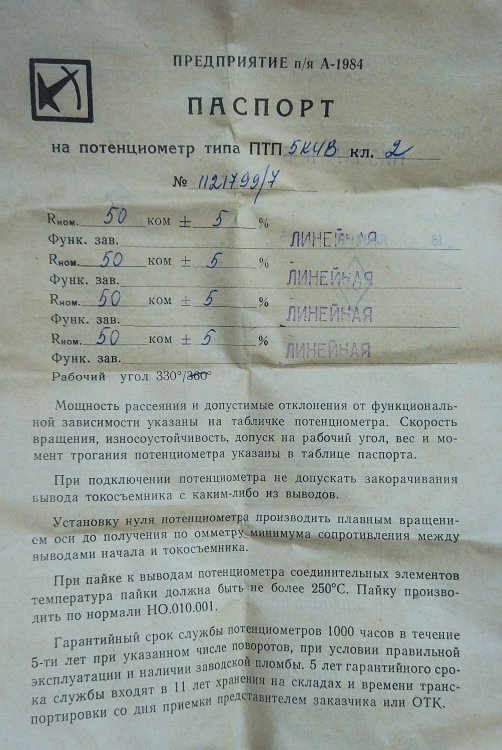 ПРЕДПРИЯТИЕ п/я А-1984
ПАСПОРТ
на потенциометр типа ПТП 5К4В кл. 2
№ 1121799/7
Rном. 50 ком ± 5 %
Функ. зав. ЛИНЕЙНАЯ
Rном. 50 ком ± 5 %
Функ. зав. ЛИНЕЙНАЯ
Rном. 50 ком ± 5 %
Функ. зав. ЛИНЕЙНАЯ
Rном. 50 ком ± 5 %
Функ. зав. ЛИНЕЙНАЯ
Рабочий угол 330°/360°
Мощность рассеяния и допустимые отклонения от функциональ-
ной зависимости указаны на табличке потенциометра. Скорость
вращения, износоустойчивость, допуск на рабочий угол, вес и мо-
мент трогания потенциометра указаны в таблице паспорта.
При подключении потенциометра не допускать закорачивания
вывода токосъемника с каким-либо из выводов.
Установку нуля потенциометра производить плавным вращени-
ем оси до получения по омметру минимума сопротивления между
выводами начала и токосъемника.
При пайке к выводам потенциометра соединительных элементов
температура пайки должна быть не более 250°С. Пайку произво-
дить по нормали НО.010.001.
Гарантийный срок службы потенциометров 1000 часов в течение
5-ти лет при указанном числе поворотов, при условии правильной
эксплуатации и наличии заводской пломбы. 5 лет гарантийного сро-
ка службы входят в 11 лет хранения на складах и времени транс-
портировки со дня приемки представителем заказчика или ОТК.